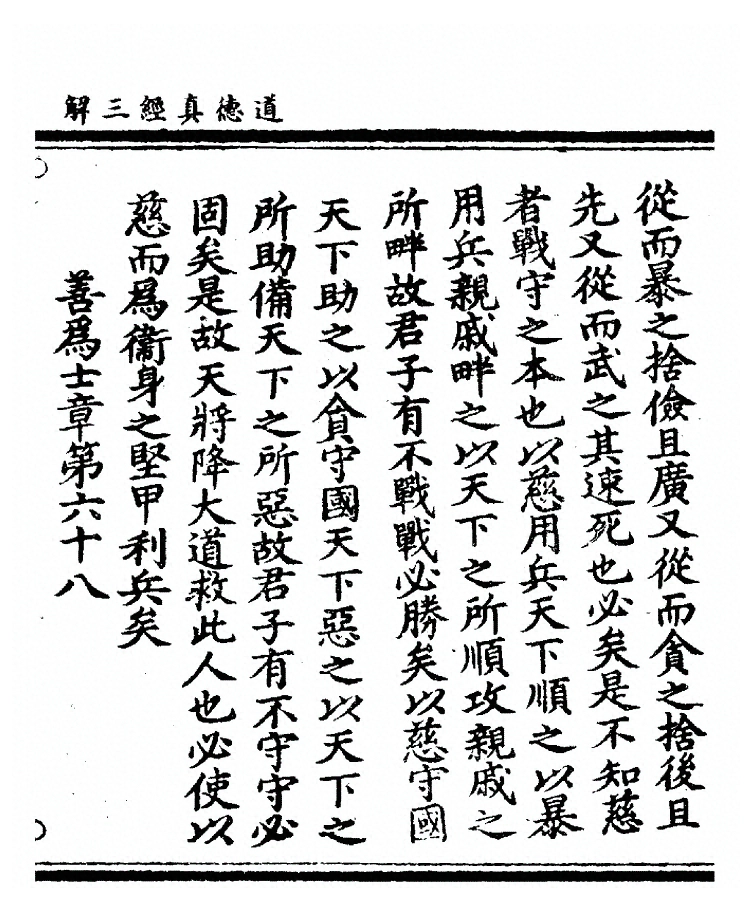 道德真經三解
從而暴之捨儉且廣又從而貪之捨後且
先又從而武之其速死也必矣是不知慈
者戰守之本也以慈用兵天下順之以暴
用兵親戚畔之以天下之所順攻親戚之
所畔故君子有不戰戰必勝矣以慈守國
天下助之以貪守國天下惡之以天下之
所助備天下之所惡故君子有不守守必
固矣是故天將降大道救此人也必使以
慈而爲衞身之堅甲利兵矣
善爲士章第六十八